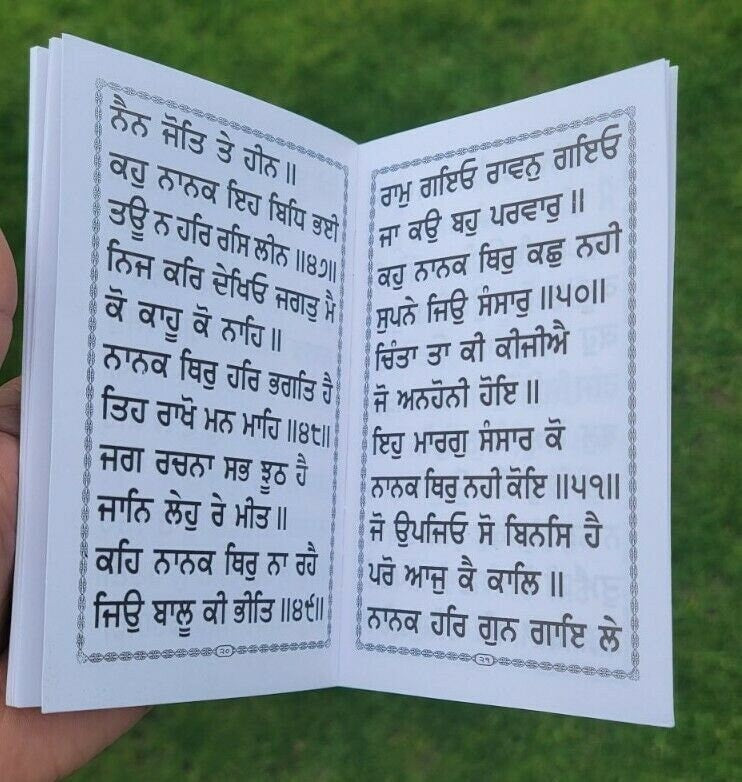 ਨੈਨ ਜੋਤਿ ਤੇ ਹੀਨ ॥
ਕਹੁ ਨਾਨਕ ਇਹ ਬਿਧਿ ਭਈ
ਤਊ ਨ ਹਰਿ ਰਸਿ ਲੀਨ ॥੪੭॥
ਨਿਜ ਕਰਿ ਦੇਖਿਓ ਜਗਤੁ ਮੈ
ਕੋ ਕਾਹੂ ਕੋ ਨਾਹਿ ॥
ਨਾਨਕ ਥਿਰੁ ਹਰਿ ਭਗਤਿ ਹੈ
ਤਿਹ ਰਾਖੋ ਮਨ ਮਾਹਿ ॥੪੮॥
ਜਗ ਰਚਨਾ ਸਭ ਝੂਠ ਹੈ
ਜਾਨਿ ਲੇਹੁ ਰੇ ਮੀਤ ॥
ਕਹਿ ਨਾਨਕ ਥਿਰੁ ਨਾ ਰਹੈ
ਜਿਉ ਬਾਲੂ ਕੀ ਭੀਤਿ ॥੪੯॥
੨੦
ਰਾਮੁ ਗਇਓ ਰਾਵਨੁ ਗਇਓ
ਜਾ ਕਉ ਬਹੁ ਪਰਵਾਰੁ ॥
ਕਹੁ ਨਾਨਕ ਥਿਰੁ ਕਛੁ ਨਹੀ
ਸੁਪਨੇ ਜਿਉ ਸੰਸਾਰੁ ॥੫੦॥
ਚਿੰਤਾ ਤਾ ਕੀ ਕੀਜੀਐ
ਜੋ ਅਨਹੋਨੀ ਹੋਇ ॥
ਇਹੁ ਮਾਰਗੁ ਸੰਸਾਰ ਕੋ
ਨਾਨਕ ਥਿਰੁ ਨਹੀ ਕੋਇ ॥੫੧॥
ਜੋ ਉਪਜਿਓ ਸੋ ਬਿਨਸਿ ਹੈ
ਪਰੋ ਆਜੁ ਕੈ ਕਾਲਿ ॥
ਨਾਨਕ ਹਰਿ ਗੁਨ ਗਾਇ ਲੇ
੨੧